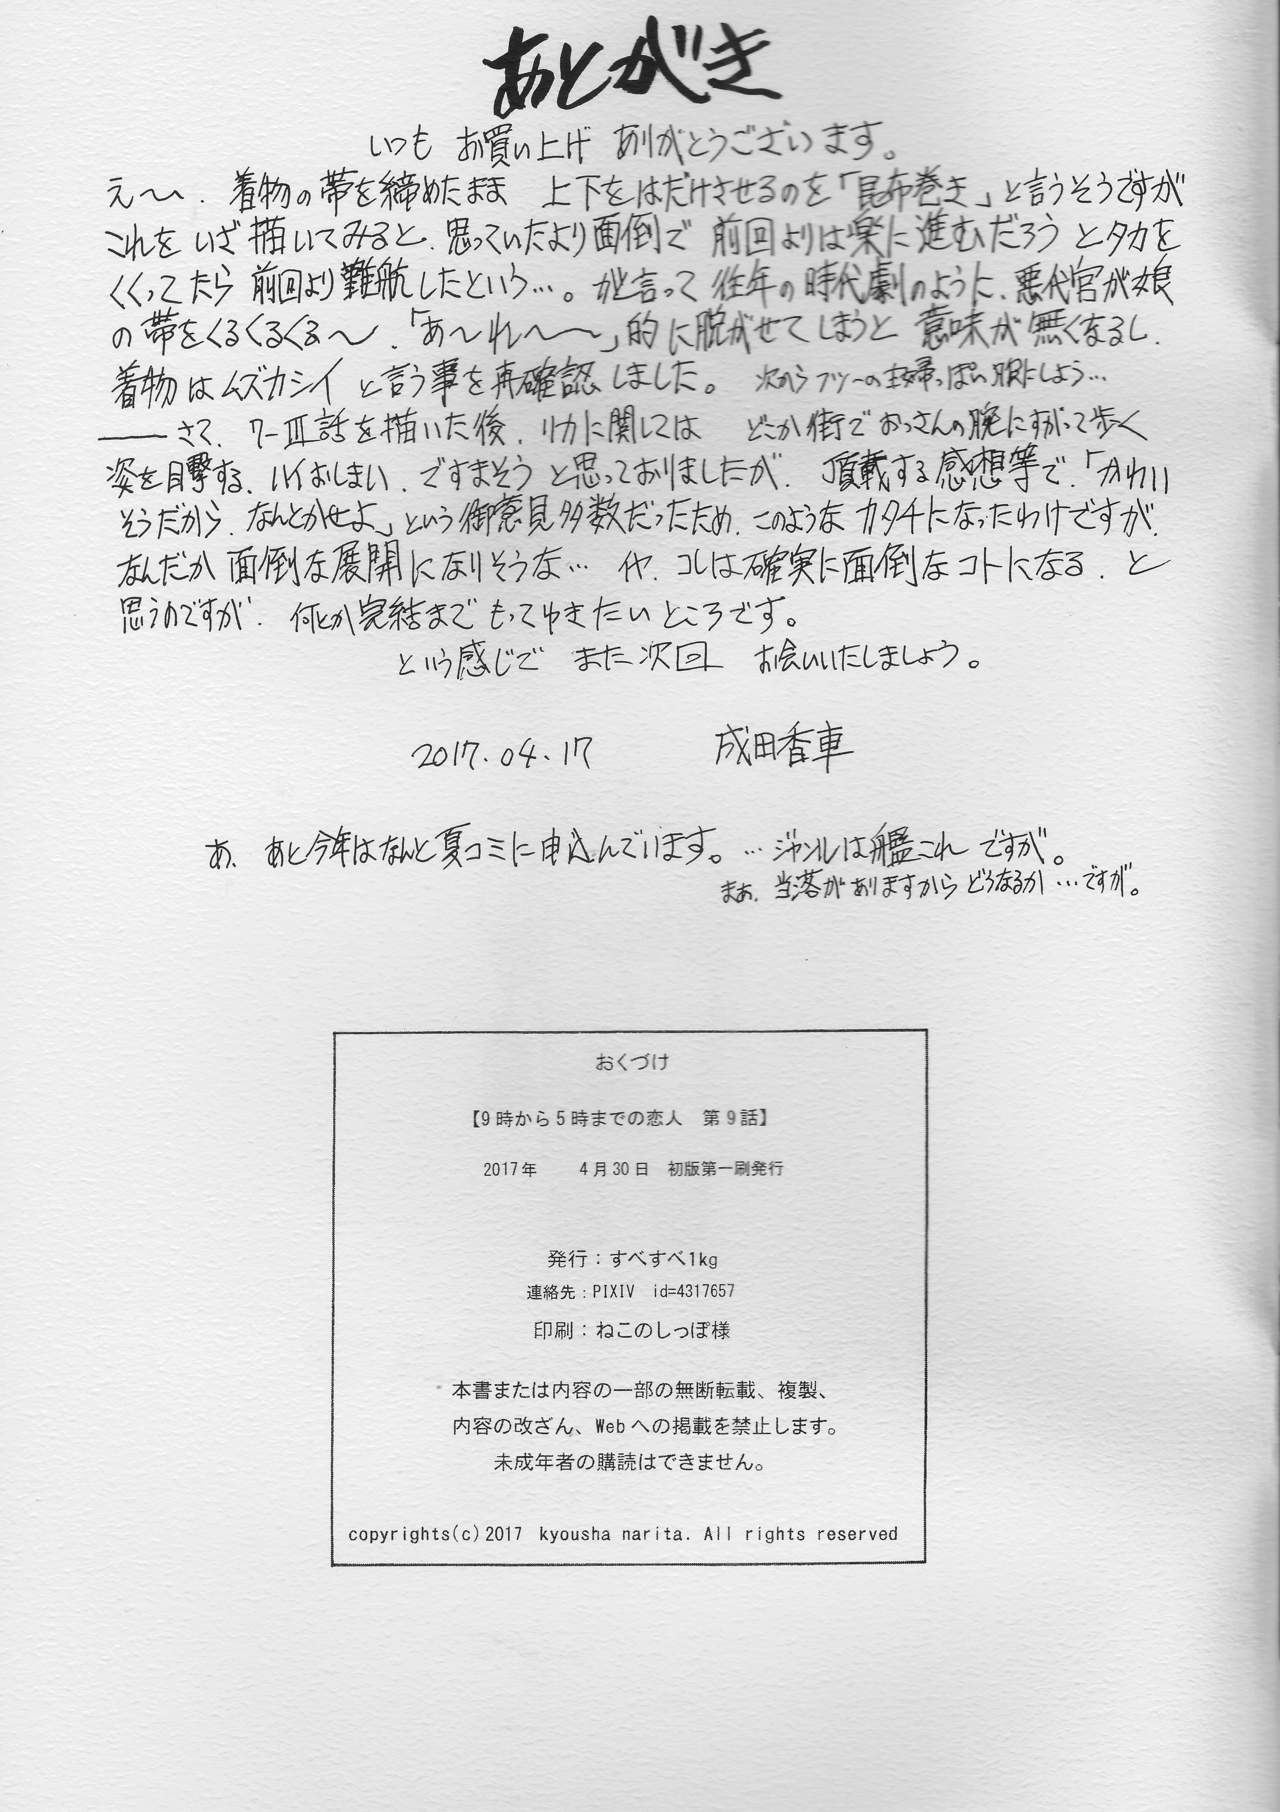 あとがき
いつも お買い上げ ありがとうございます。
え～、着物の帯を締めたまま 上下をはだけさせるのを「昆布巻き」と言うそうですが
これを いざ 描いてみると、思っていたより面倒で 前回よりは楽に進むだろう とタカを
くくってたら 前回より難航したという…。かと言って 往年の時代劇のように、悪代官が娘
の帯をくるくるくる～、「あ～れ～～」的に脱がせてしまうと 意味が無くなるし、
着物はムズカシイ と言う事を再確認しました。 次からフツーの主婦っぽい服にしよう…
――さて、7-Ⅲ話を描いた後、リカに関しては どこか街でおっさんの腕にすがって歩く
姿を目撃する、ハイおしまい、ですまそう と思っておりましたが、頂載する感想等で、「かわい
そうだから、なんとかせよ」という御意見多数だったため、このようなカタチになったわけですが、
なんだか面倒な展開になりそうな… イヤ、コレは確実に面倒なコトになる、と
思うのですが、何とか完結まで もってゆきたいところです。
という感じで また次回 お会いいたしましょう。
2017.04.17 成田香車
あ、あと今年はなんと夏コミに申込んでいます。…ジャンルは艦これ ですが。
まあ、当落がありますから どうなるか…ですが。
おくづけ
【9時から5時までの恋人 第9話】
2017年 4月30日 初版第一刷発行
発行：すべすべ1kg
連絡先：PIXIV id=4317657
印刷：ねこのしっぽ様
本書または内容の一部の無断転載、複製、
内容の改ざん、Webへの掲載を禁止します。
未成年者の購読はできません。
copyrights(c)2017 kyousha narita. All rights reserved